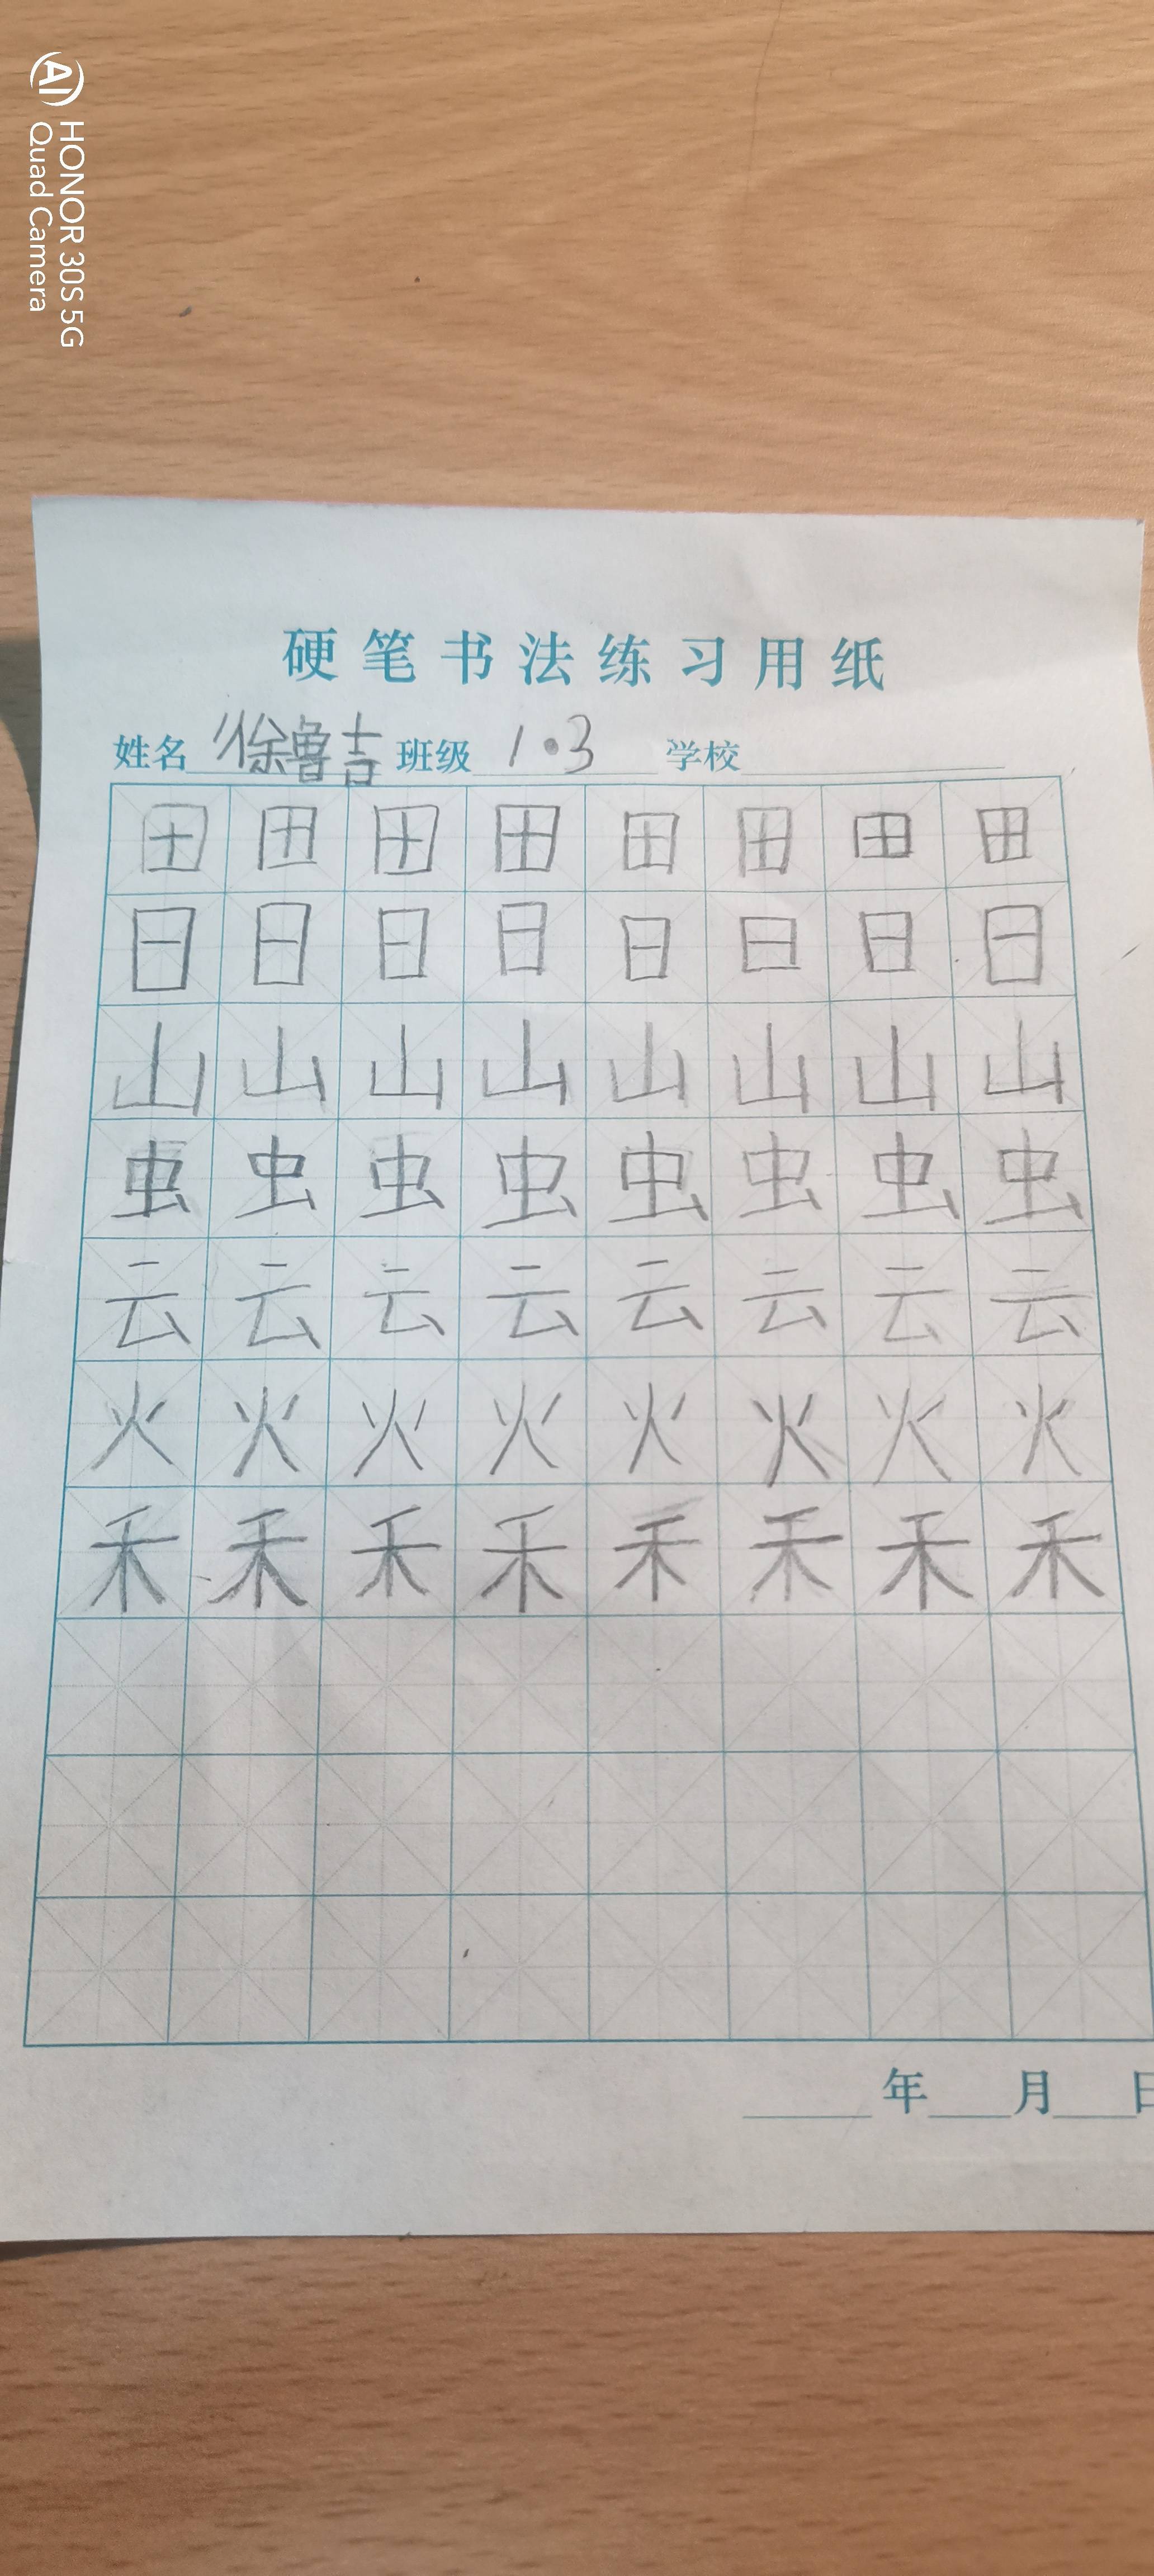 HONOR 30S 5G
Quad Camera
硬笔书法练习用纸
姓名 徐鲁吉 班级 1·3 学校
田 田 田 田 田 田 田 田
日 日 日 日 日 日 日 日
山 山 山 山 山 山 山 山
虫 虫 虫 虫 虫 虫 虫 虫
云 云 云 云 云 云 云 云
火 火 火 火 火 火 火 火
禾 禾 禾 禾 禾 禾 禾 禾
年 月 日